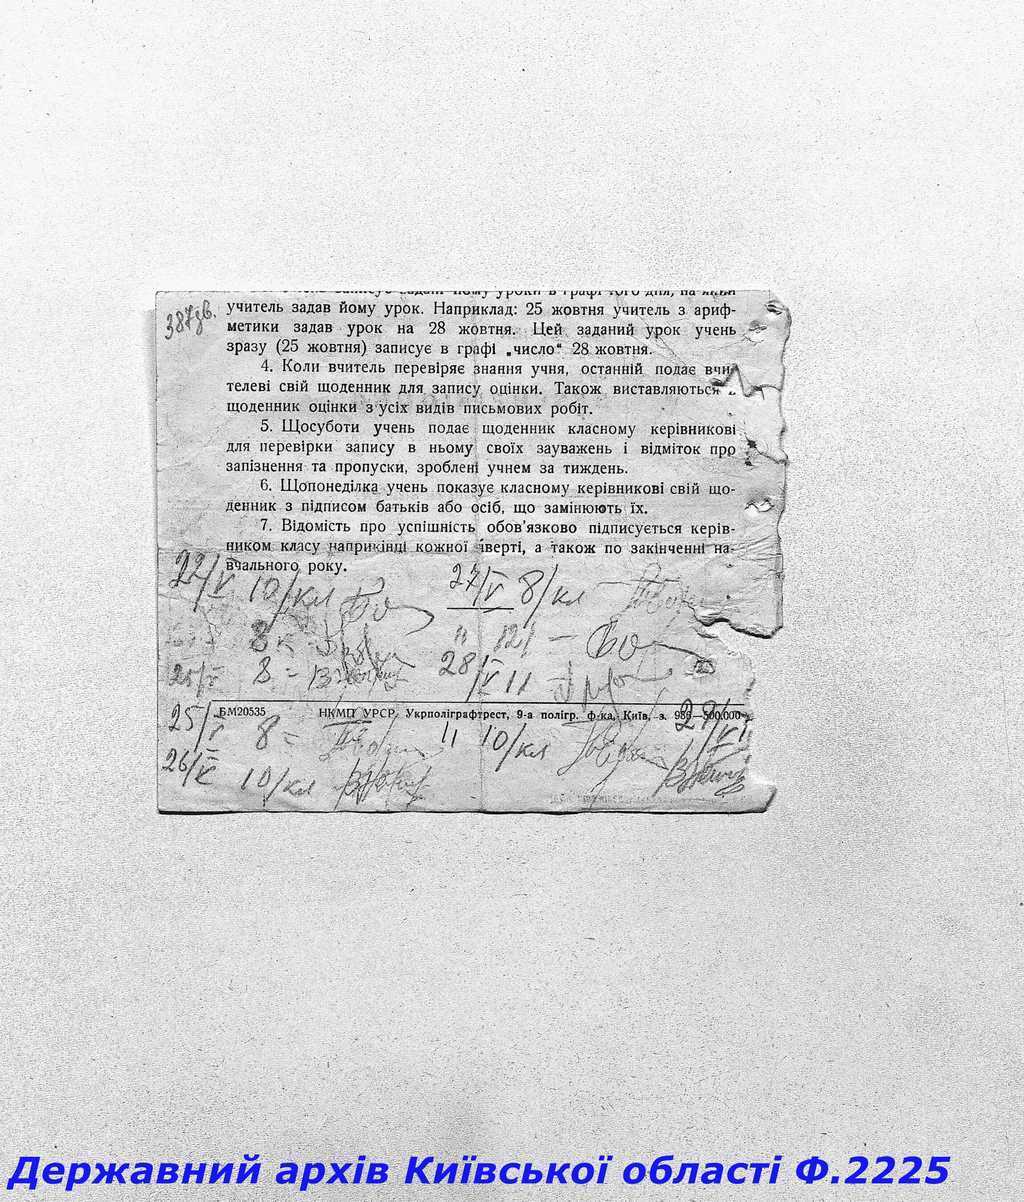 387зв.
записує задані йому уроки в графі того дня, на який
учитель задав йому урок. Наприклад: 25 жовтня учитель з ариф-
метики задав урок на 28 жовтня. Цей заданий урок учень
зразу (25 жовтня) записує в графі „число“ 28 жовтня.
4. Коли вчитель перевіряє знання учня, останній подає вчи-
телеві свій щоденник для запису оцінки. Також виставляються
щоденник оцінки з усіх видів письмових робіт.
5. Щосуботи учень подає щоденник класному керівникові
для перевірки запису в ньому своїх зауважень і відміток про
запізнення та пропуски, зроблені учнем за тиждень.
6. Щопонеділка учень показує класному керівникові свій що-
денник з підписом батьків або осіб, що замінюють їх.
7. Відомість про успішність обов'язково підписується керів-
ником класу наприкінці кожної чверті, а також по закінченні на-
вчального року.
22/V 10/кл 27/V 8/кл
8 к " 12/ —
25/V 8 = 28/V 11
БМ20535 НКМП УРСР, Укрполіграфтрест, 9-а полігр. ф-ка, Київ, з. 986—500.000
25/V 8 = 11 10/кл 29/VI
26/V 10/кл
Державний архів Київської області Ф.2225